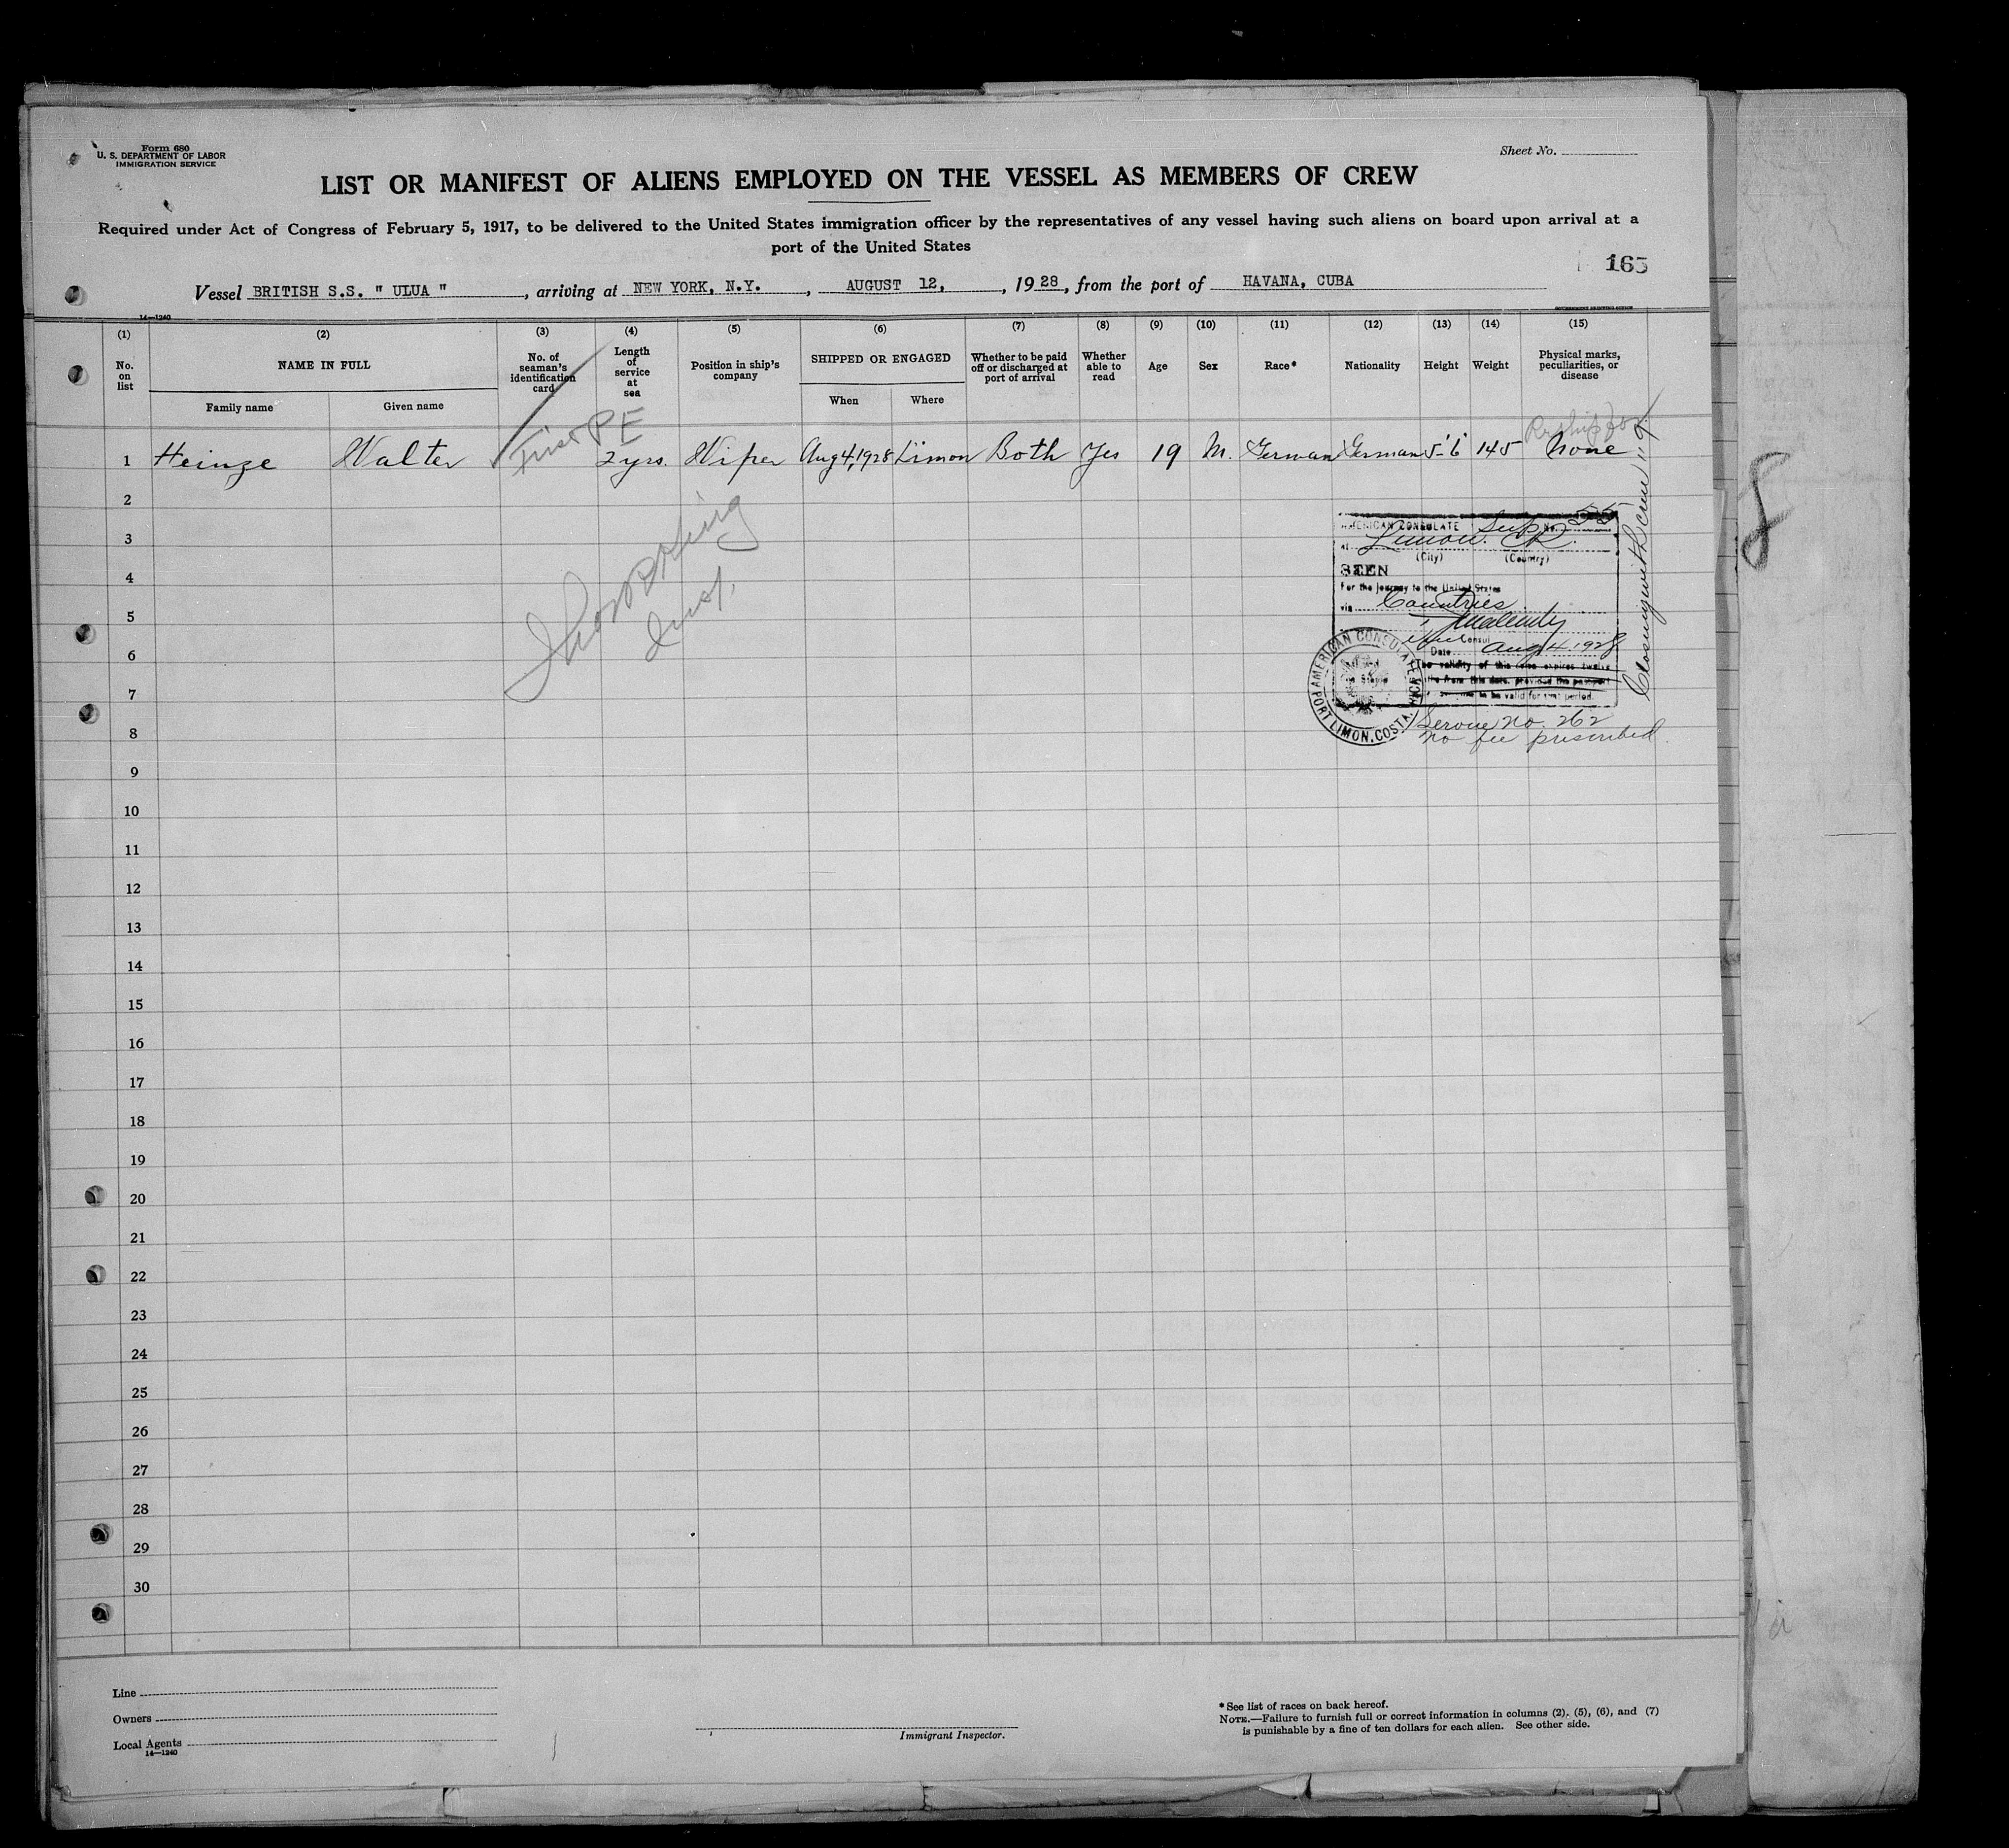 Form 680
U. S. DEPARTMENT OF LABOR
IMMIGRATION SERVICE
Sheet No.
LIST OR MANIFEST OF ALIENS EMPLOYED ON THE VESSEL AS MEMBERS OF CREW
Required under Act of Congress of February 5, 1917, to be delivered to the United States immigration officer by the representatives of any vessel having such aliens on board upon arrival at a
port of the United States
165
Vessel BRITISH S.S. " ULUA ", arriving at NEW YORK, N.Y., AUGUST 12, , 1928, from the port of HAVANA, CUBA
14—1240
(1) (2) (3) (4) (5) (6) (7) (8) (9) (10) (11) (12) (13) (14) (15)
No. on list
NAME IN FULL
Family name
Given name
No. of seaman's identification card
Length of service at sea
Position in ship's company
SHIPPED OR ENGAGED
When
Where
Whether to be paid off or discharged at port of arrival
Whether able to read
Age
Sex
Race*
Nationality
Height
Weight
Physical marks, peculiarities, or disease
First PE
Reship for
1 Heinze Walter 2 yrs. Wiper Aug 4, 1928 Limon Both Yes 19 M. German German 5'6 145 None
2
3
4
5
6
7
8
9
10
11
12
13
14
15
16
17
18
19
20
21
22
23
24
25
26
27
28
29
30
Insp.
AMERICAN CONSULATE Supp No. 55
At Limon. CR.
(City) (Country)
SEEN
For the journey to the United States
via Countries
Consul
Date Aug 4. 1928
The validity of this visa expires twelve
months from this date, provided the passport
continues to be valid for that period.
AMERICAN CONSULATE
PORT LIMON, COSTA RICA
Service No. 262
no fee prescribed.
Closing with crew "9"
8
Line
Owners
Local Agents
14—1240
Immigrant Inspector.
*See list of races on back hereof.
NOTE.—Failure to furnish full or correct information in columns (2), (5), (6), and (7)
is punishable by a fine of ten dollars for each alien. See other side.